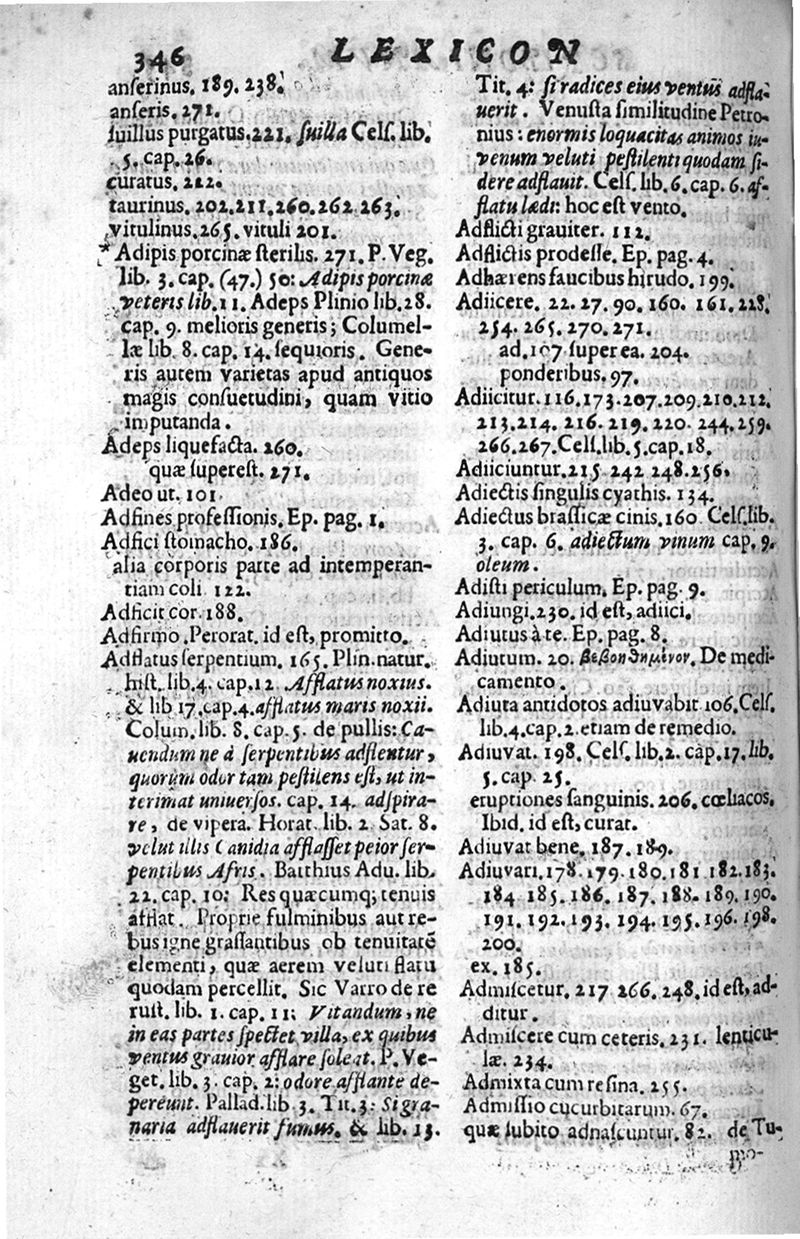 346 LEXICON
anserinus. 189. 238.
anseris. 271.
suillus purgatus. 221. suilla Cels. lib.
5. cap. 26.
curatus. 212.
taurinus. 202. 211. 260. 262 263.
vitulinus. 265. vituli 201.
* Adipis porcinæ sterilis. 271. P. Veg.
lib. 3. cap. (47.) 50: Adipis porcinæ
veteris lib. 11. Adeps Plinio lib. 28.
cap. 9. melioris generis; Columel-
læ lib. 8. cap. 14. sequioris. Gene-
ris autem varietas apud antiquos
magis consuetudini, quam vitio
imputanda.
Adeps liquefacta. 260.
quæ superest. 271.
Adeo ut. 101
Adfines professionis. Ep. pag. 1.
Adfici stomacho. 186.
alia corporis parte ad intemperan-
tiam coli 122.
Adficit cor. 188.
Adfirmo. Perorat. id est, promitto.
Adflatus serpentium. 165. Plin. natur.
hist. lib. 4. cap. 12 Afflatus noxius.
& lib 17. cap. 4. afflatus maris noxii.
Colum. lib. 8. cap. 5. de pullis: Ca-
uendum ne à serpentibus adflentur,
quorum odor tam pestilens est, ut in-
terimat uniuersos. cap. 14. adspira-
re, de vipera. Horat. lib. 2. Sat. 8.
velut illis Canidia afflasset peior ser-
pentibus Afris. Batthius Adu. lib.
22. cap. 10: Res quæcumq; tenuis
afflat. Proprie fulminibus aut re-
bus igne grassantibus ob tenuitatē
elementi, quæ aerem veluti flatu
quodam percellit. Sic Varro de re
rust. lib. 1. cap. 11: Vitandum, ne
in eas partes spectet villa, ex quibus
ventus grauior afflare soleat. P. Ve-
get. lib. 3. cap. 2: odore afflante de-
pereunt. Pallad. lib 3. Tit. 3: Si gra-
naria adflauerit fumus. & lib. 13.
Tit. 4: si radices eius ventus adfla-
uerit. Venusta similitudine Petro-
nius: enormis loquacitas animos iu-
venum veluti pestilenti quodam si-
dere adflauit. Cels. lib. 6. cap. 6. af-
flatu lædi: hoc est vento.
Adflicti grauiter. 112.
Adflictis prodesse. Ep. pag. 4.
Adhærens faucibus hirudo. 199.
Adiicere. 22. 27. 90. 160. 161. 228.
254. 265. 270. 271.
ad. 107 super ea. 204.
ponderibus. 97.
Adiicitur. 116. 173. 207. 209. 210. 212.
213. 214. 216. 219. 220. 244. 259.
266. 267. Cels. lib. 5. cap. 18.
Adiiciuntur. 215 242 248. 256.
Adiectis singulis cyathis. 134.
Adiectus brassicæ cinis. 160 Cels. lib.
3. cap. 6. adiectum vinum cap. 9.
oleum.
Adisti periculum. Ep. pag. 9.
Adiungi. 230. id est, adiici.
Adiutus à te. Ep. pag. 8.
Adiutum. 20. βεβοηθημένον. De medi-
camento.
Adiuta antidotos adiuvabit 106. Cels.
lib. 4. cap. 2. etiam de remedio.
Adiuvat. 198. Cels. lib. 2. cap. 17. lib.
5. cap. 25.
eruptiones sanguinis. 206. cœliacos.
Ibid. id est, curat.
Adiuvat bene. 187. 189.
Adiuvari. 178. 179. 180. 181 182. 183.
184 185. 186. 187. 188. 189. 190.
191. 192. 193. 194. 195. 196. 198.
200.
ex. 185.
Admiscetur. 217 266. 248. id est, ad-
ditur.
Admiscere cum ceteris. 231. lenticu-
læ. 234.
Admixta cum resina. 255.
Admissio cucurbitarum. 67.
quæ subito adnascuntur. 82. de Tu-
mo-